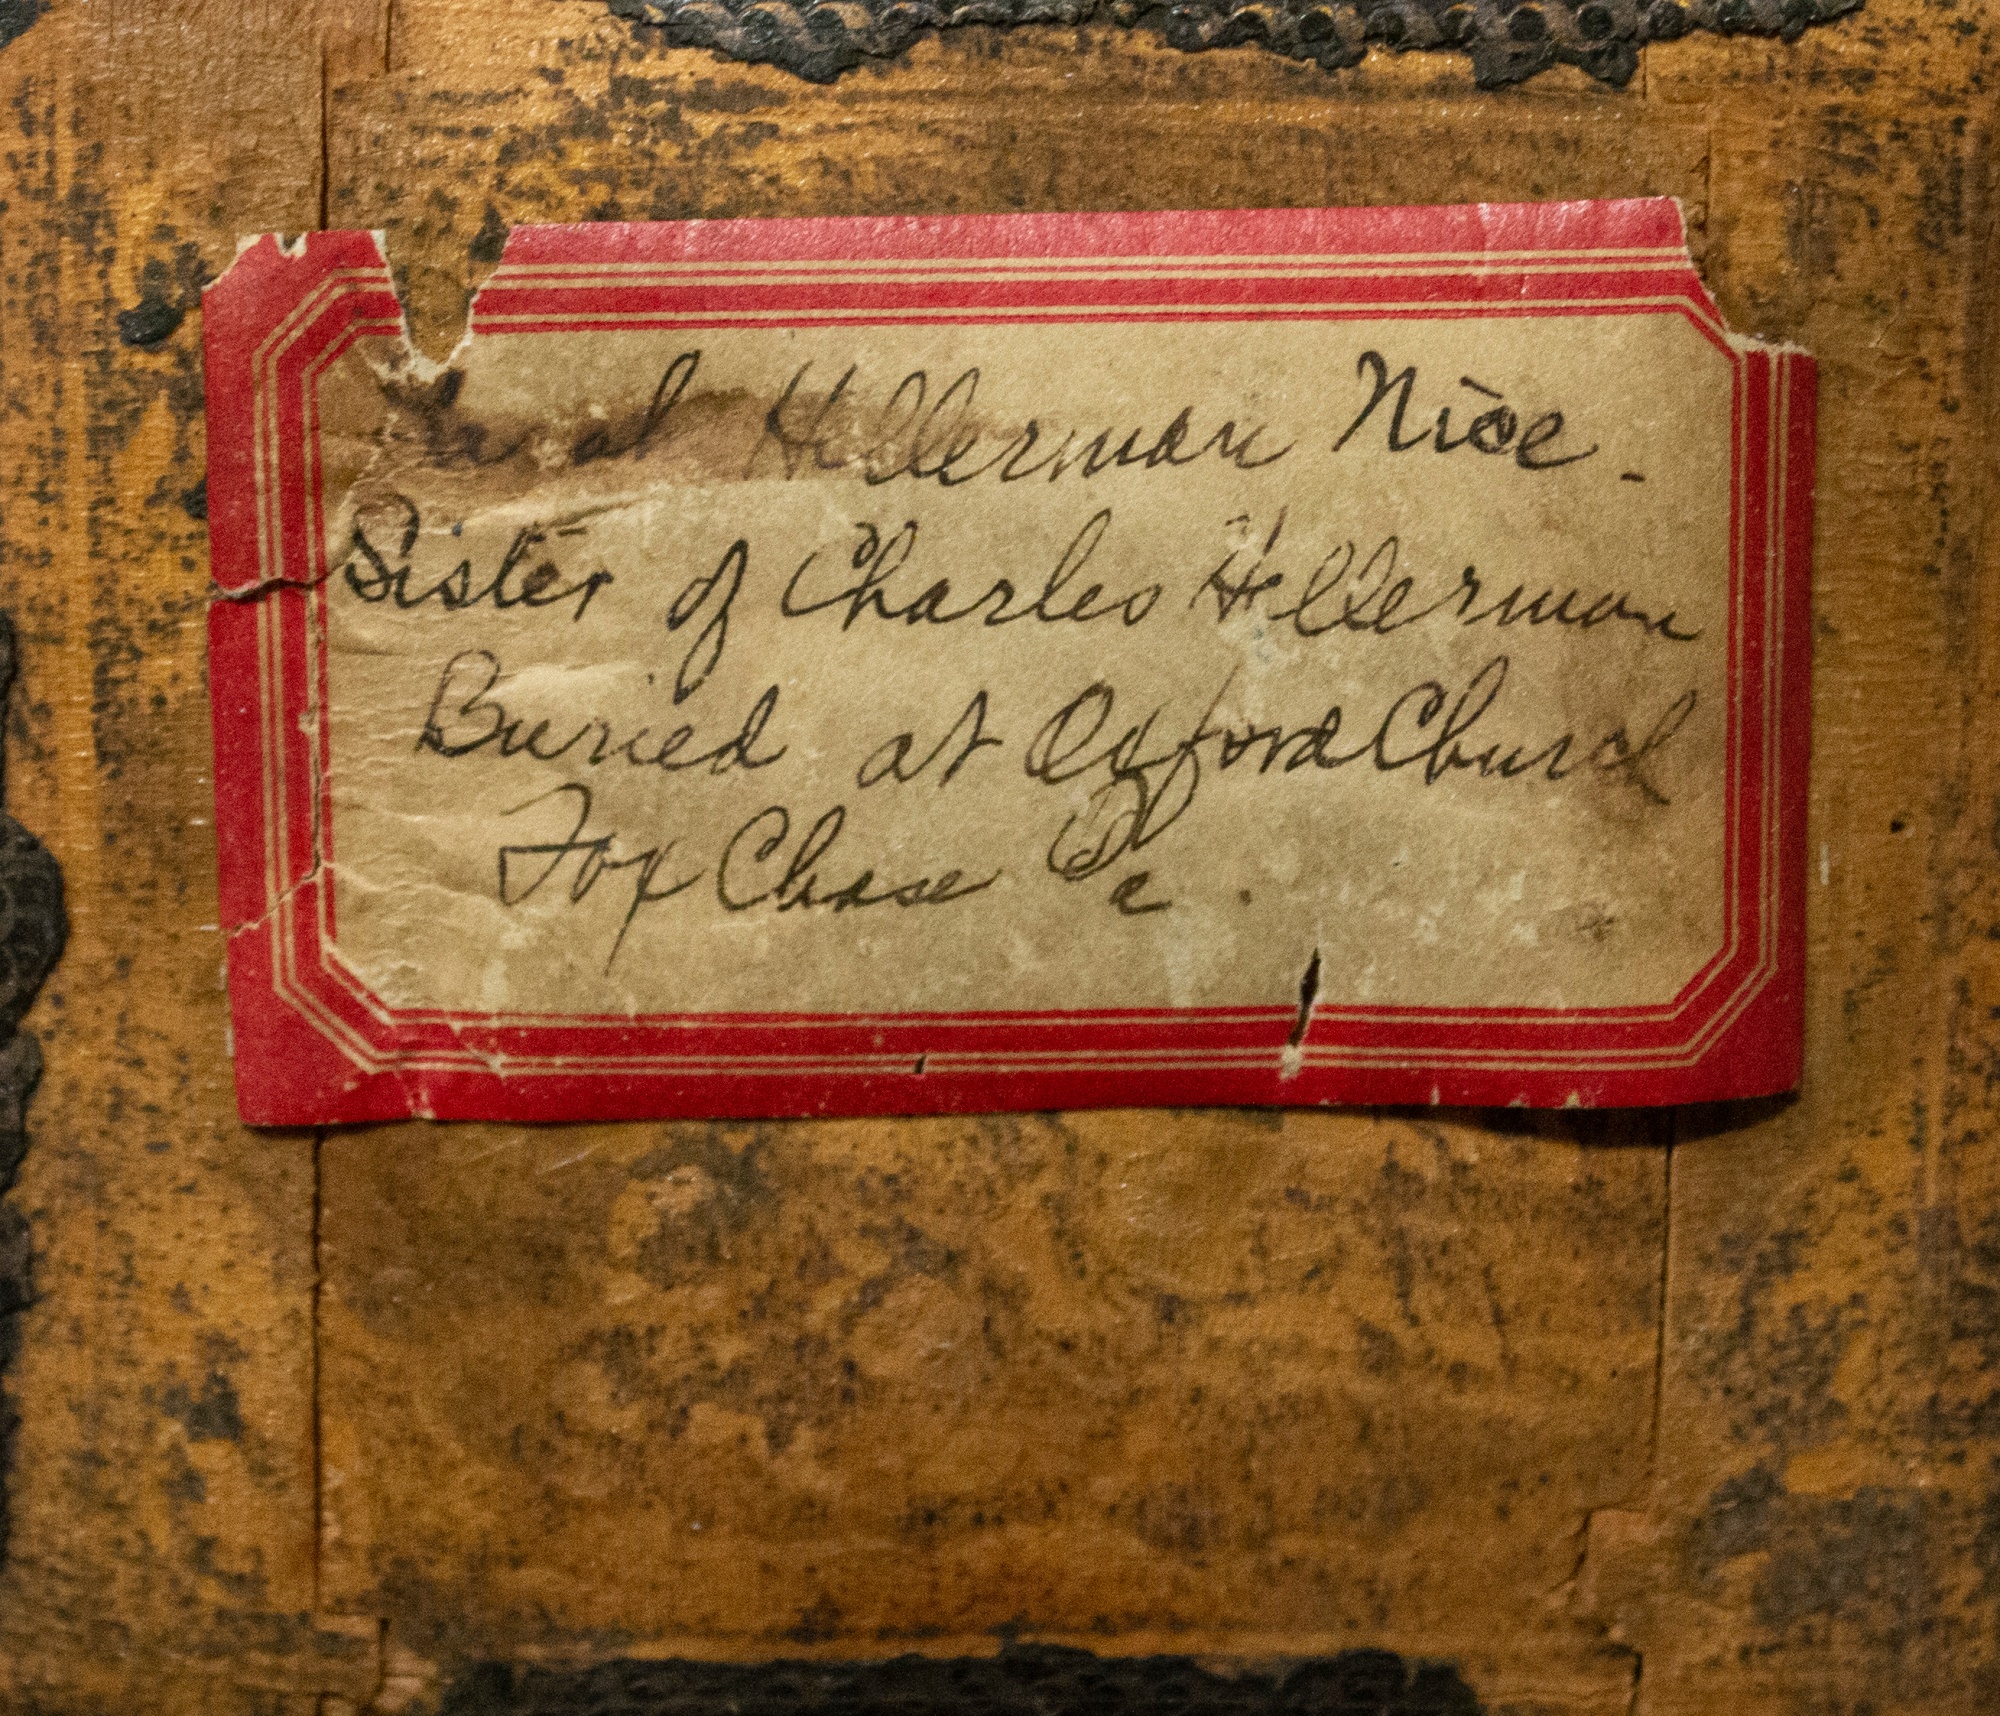 Sarah Hellerman Nice.
Sister of Charles Hellerman
Buried at Oxford Church
Fox Chase Pa.